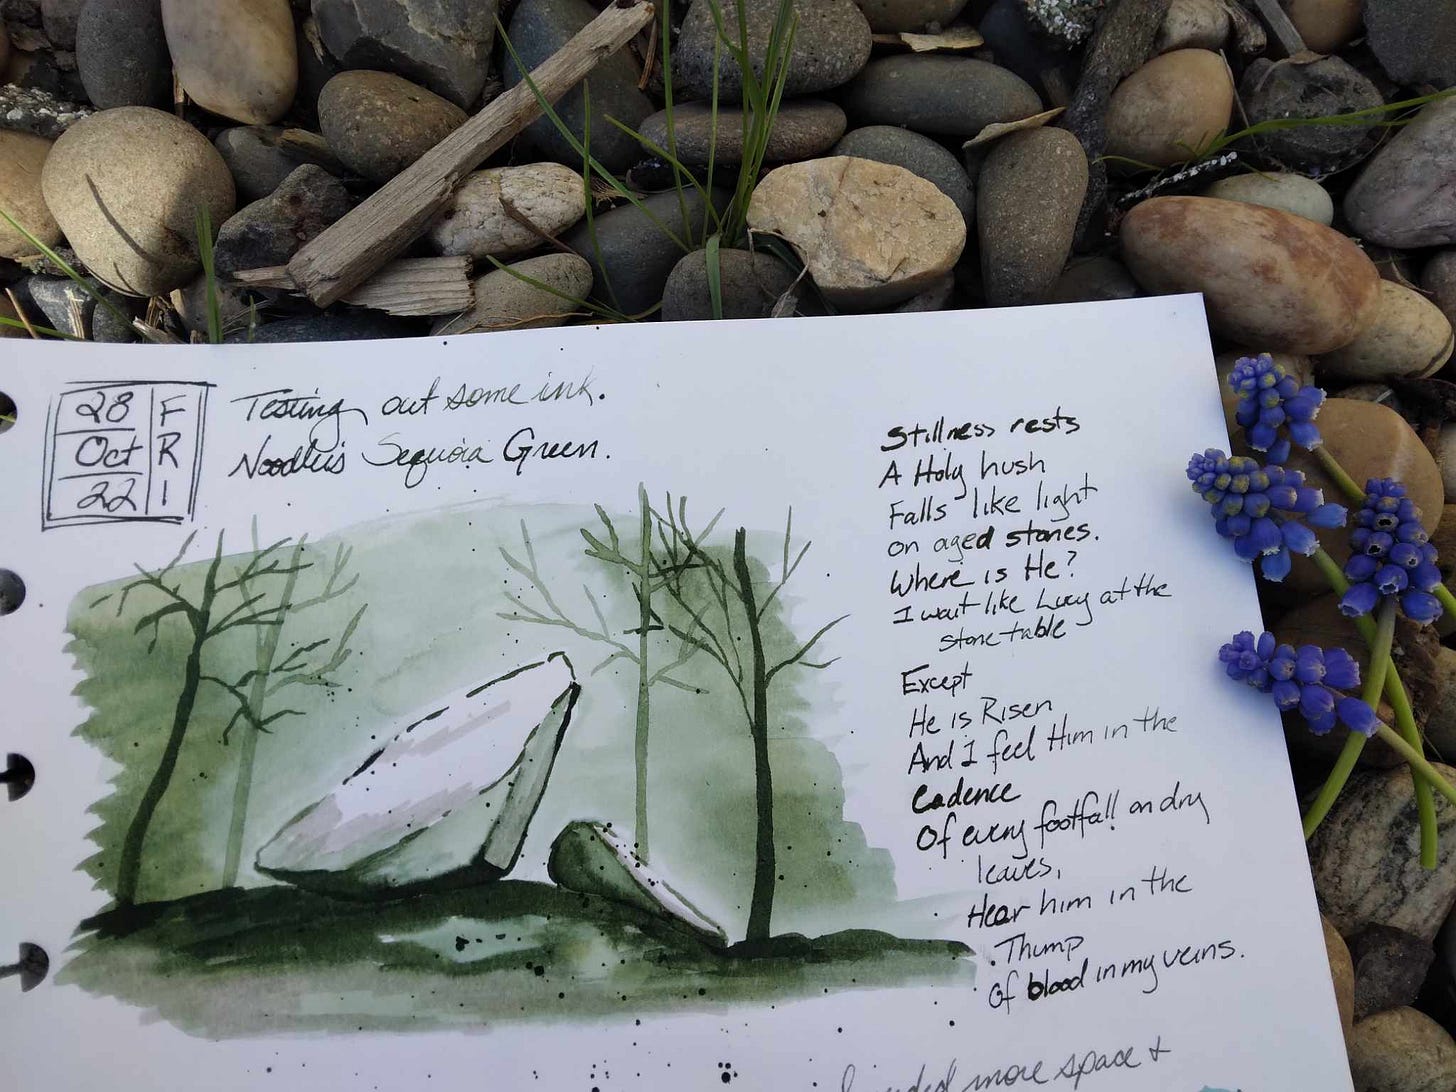 28 F
Oct R
22 I
Testing out some ink.
Noodler's Sequoia Green.
Stillness rests
A Holy hush
Falls like light
on aged stones.
Where is He?
I wait like Lucy at the
stone table
Except
He is Risen
And I feel Him in the
Cadence
Of every footfall on dry
leaves,
Hear him in the
Thump
Of blood in my veins.
needed more space +